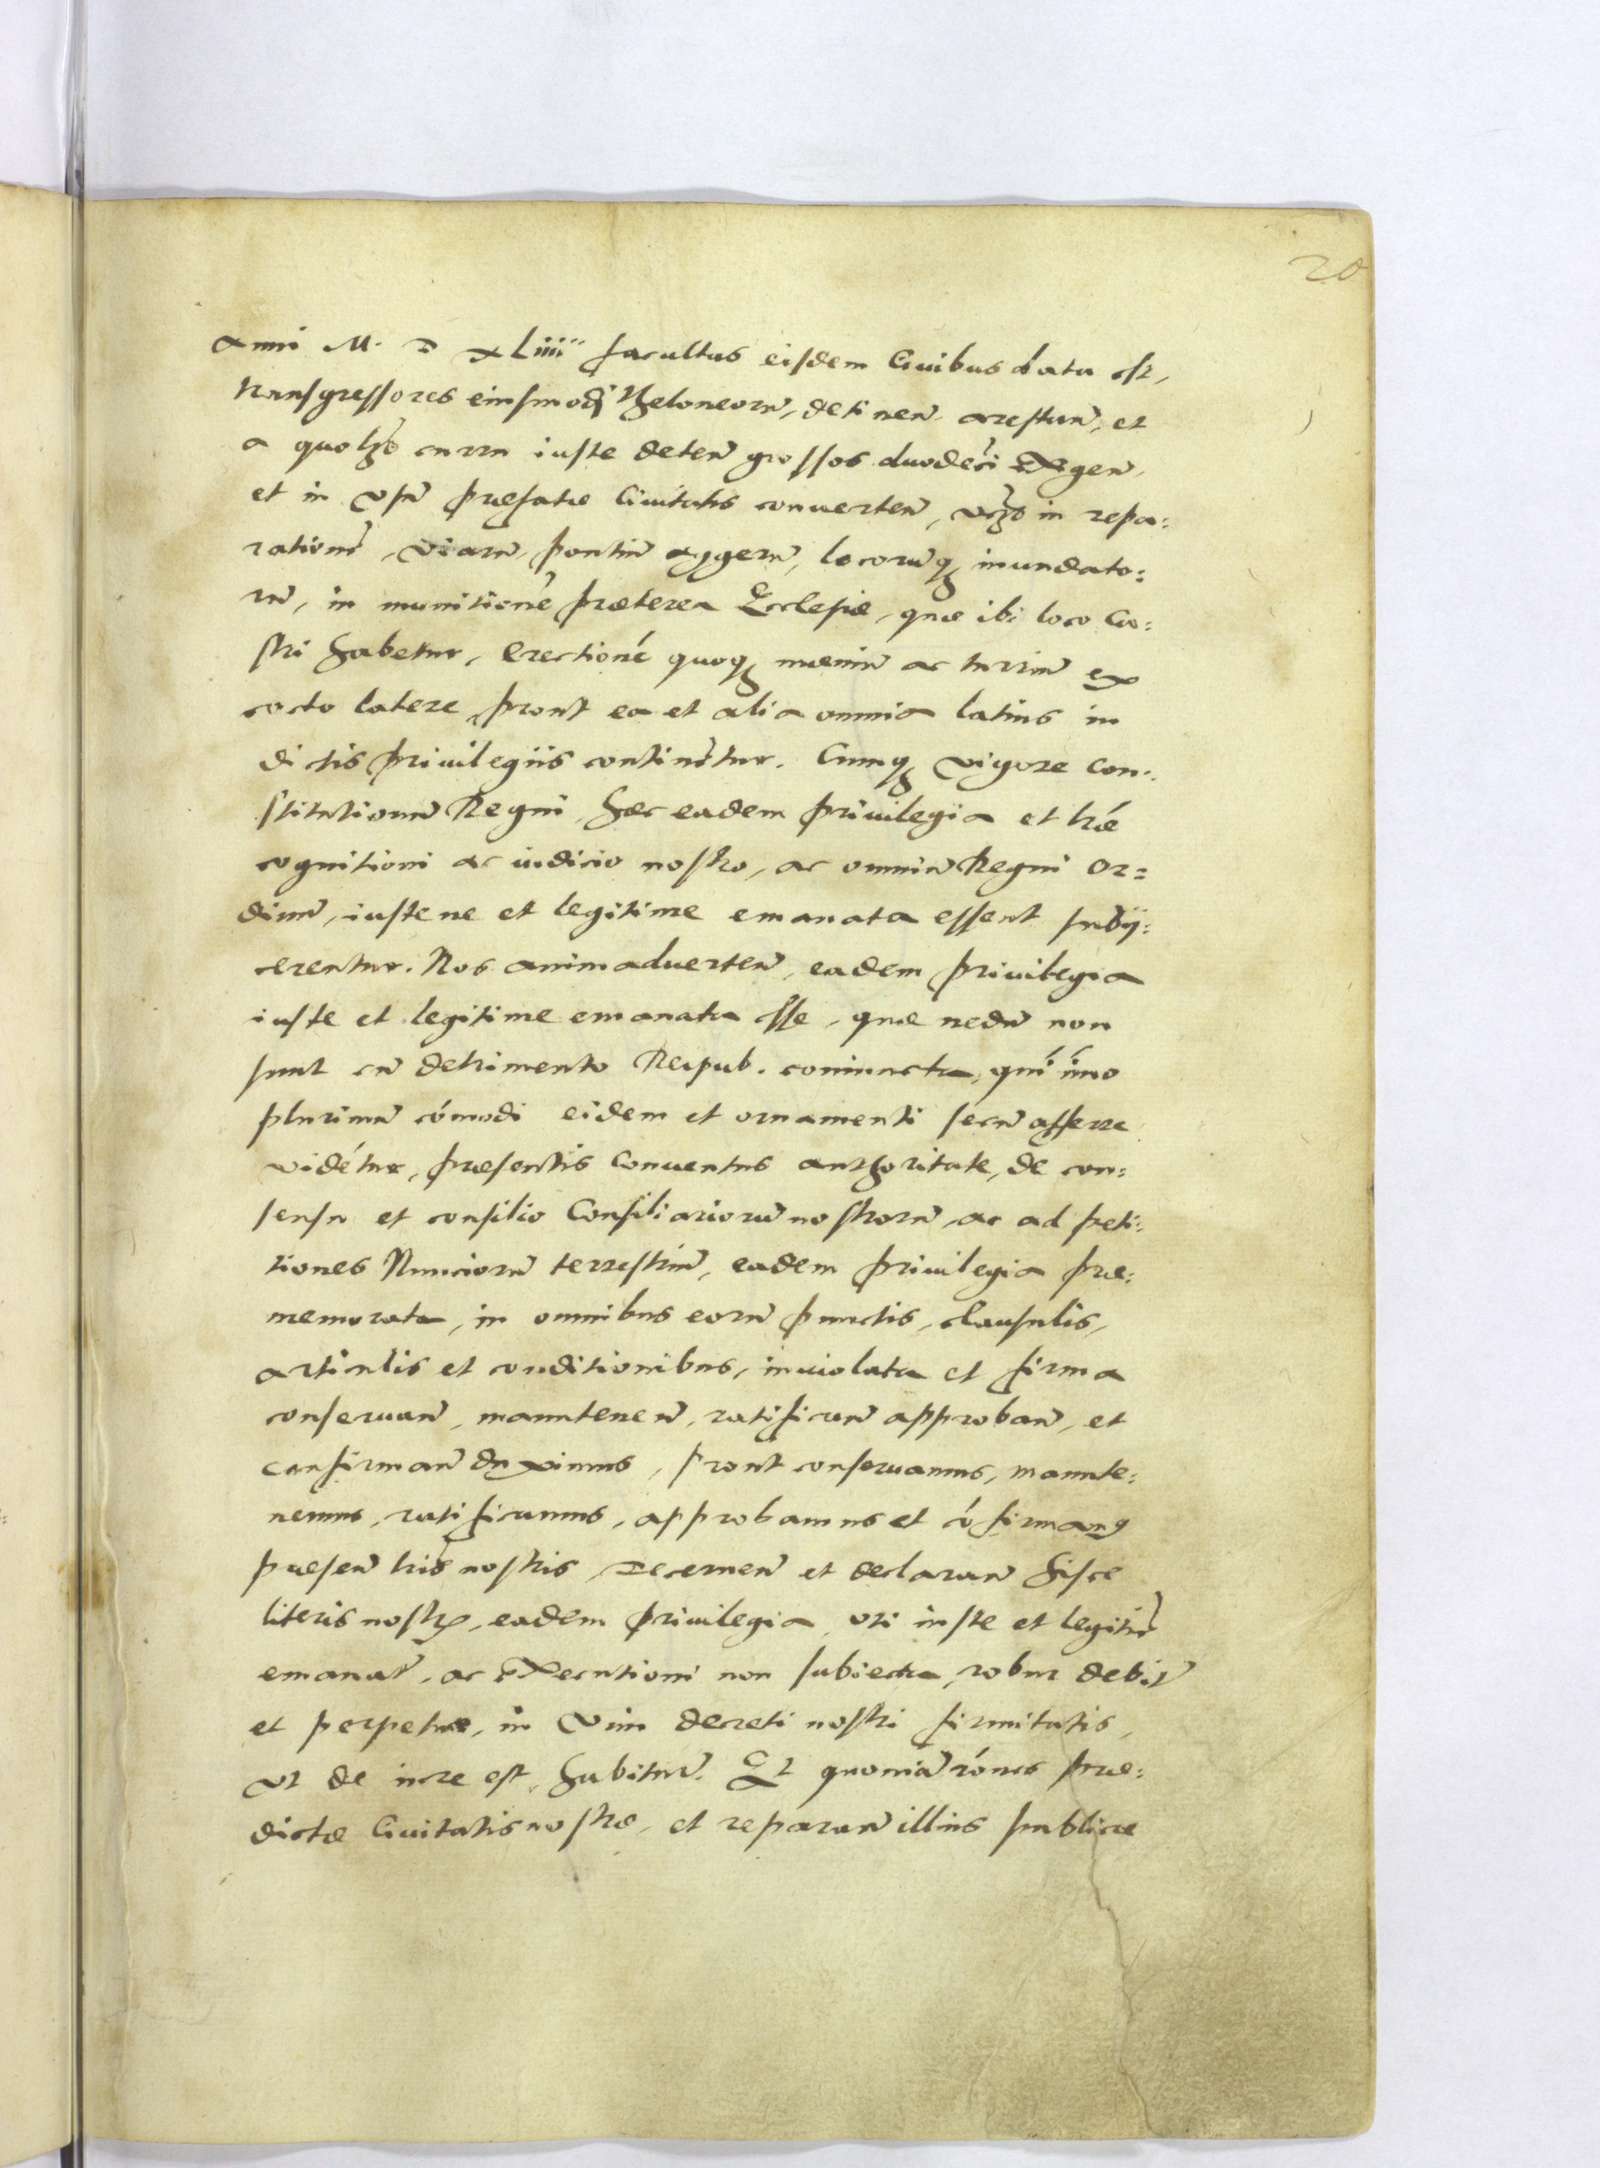 20
Anni M. D XLiiii facultas eisdem Ciuibus data est,
transgressores eiusmodj theloneorū, detinen̄ arestan̄, et
a quolȝ curru iuste deten̄ grossos duodeci exigen̄,
et in vsū præfatæ Ciuitatis conuerten̄, in repa:
rationē, viarū, pontiū aggerū, locorūqȝ inundato:
rū, in munitionē præterea Ecclesiæ, quæ ibi loco Ca:
stri habetur, Erectionē quoqȝ mueniū ac turriū ex
cocto latere, prout ea et alia omnia latius in
dictis priuilegiis continētur. Cumqȝ vigore Con:
stitutionū Regni, hæc eadem priuilegia et lræ
cognitioni ac iudicio nostro, ac omniū Regni Or=
dinū, iustene et legitime emanata essent subÿ:
cerentur. Nos animaduerten̄, eadem priuilegia
iuste et legitime emanata esse, quæ nedū non
sunt cū detrimento Reipub. coniuncta, quī īmo
plurimū cómodi eidem et ornamenti secū afferre
vidétur, præsentis Conuentus authoritate, de con:
sensu et consilio Consiliariorū nostrorū, ac ad peti:
tiones Nunciorū terrestriū, eadem priuilegia præ:
memorata, in omnibus eorū punctis, clausulis,
articulis et conditionibus, inuiolata et firma
conseruan̄, manutenen̄, ratifican̄ approban̄, et
confirman̄ duximus, prout conseruamus, manute:
nemus, ratificamus, approbamus et cófirmamꝰ
præsen̄ lris nostris, Decernen̄ et declaran̄ hisce
literis nostrꝭ, eadem priuilegia, vti iuste et legitiē
emanat̄, ac executioni non subiecta, robur debit̄
et perpetuæ, in vim decreti nostri firmitatis,
vt de iure est, habitur̄. Et quoniā rónes præ:
dictæ Ciuitatis nostræ, et reparan̄ illius publicæ